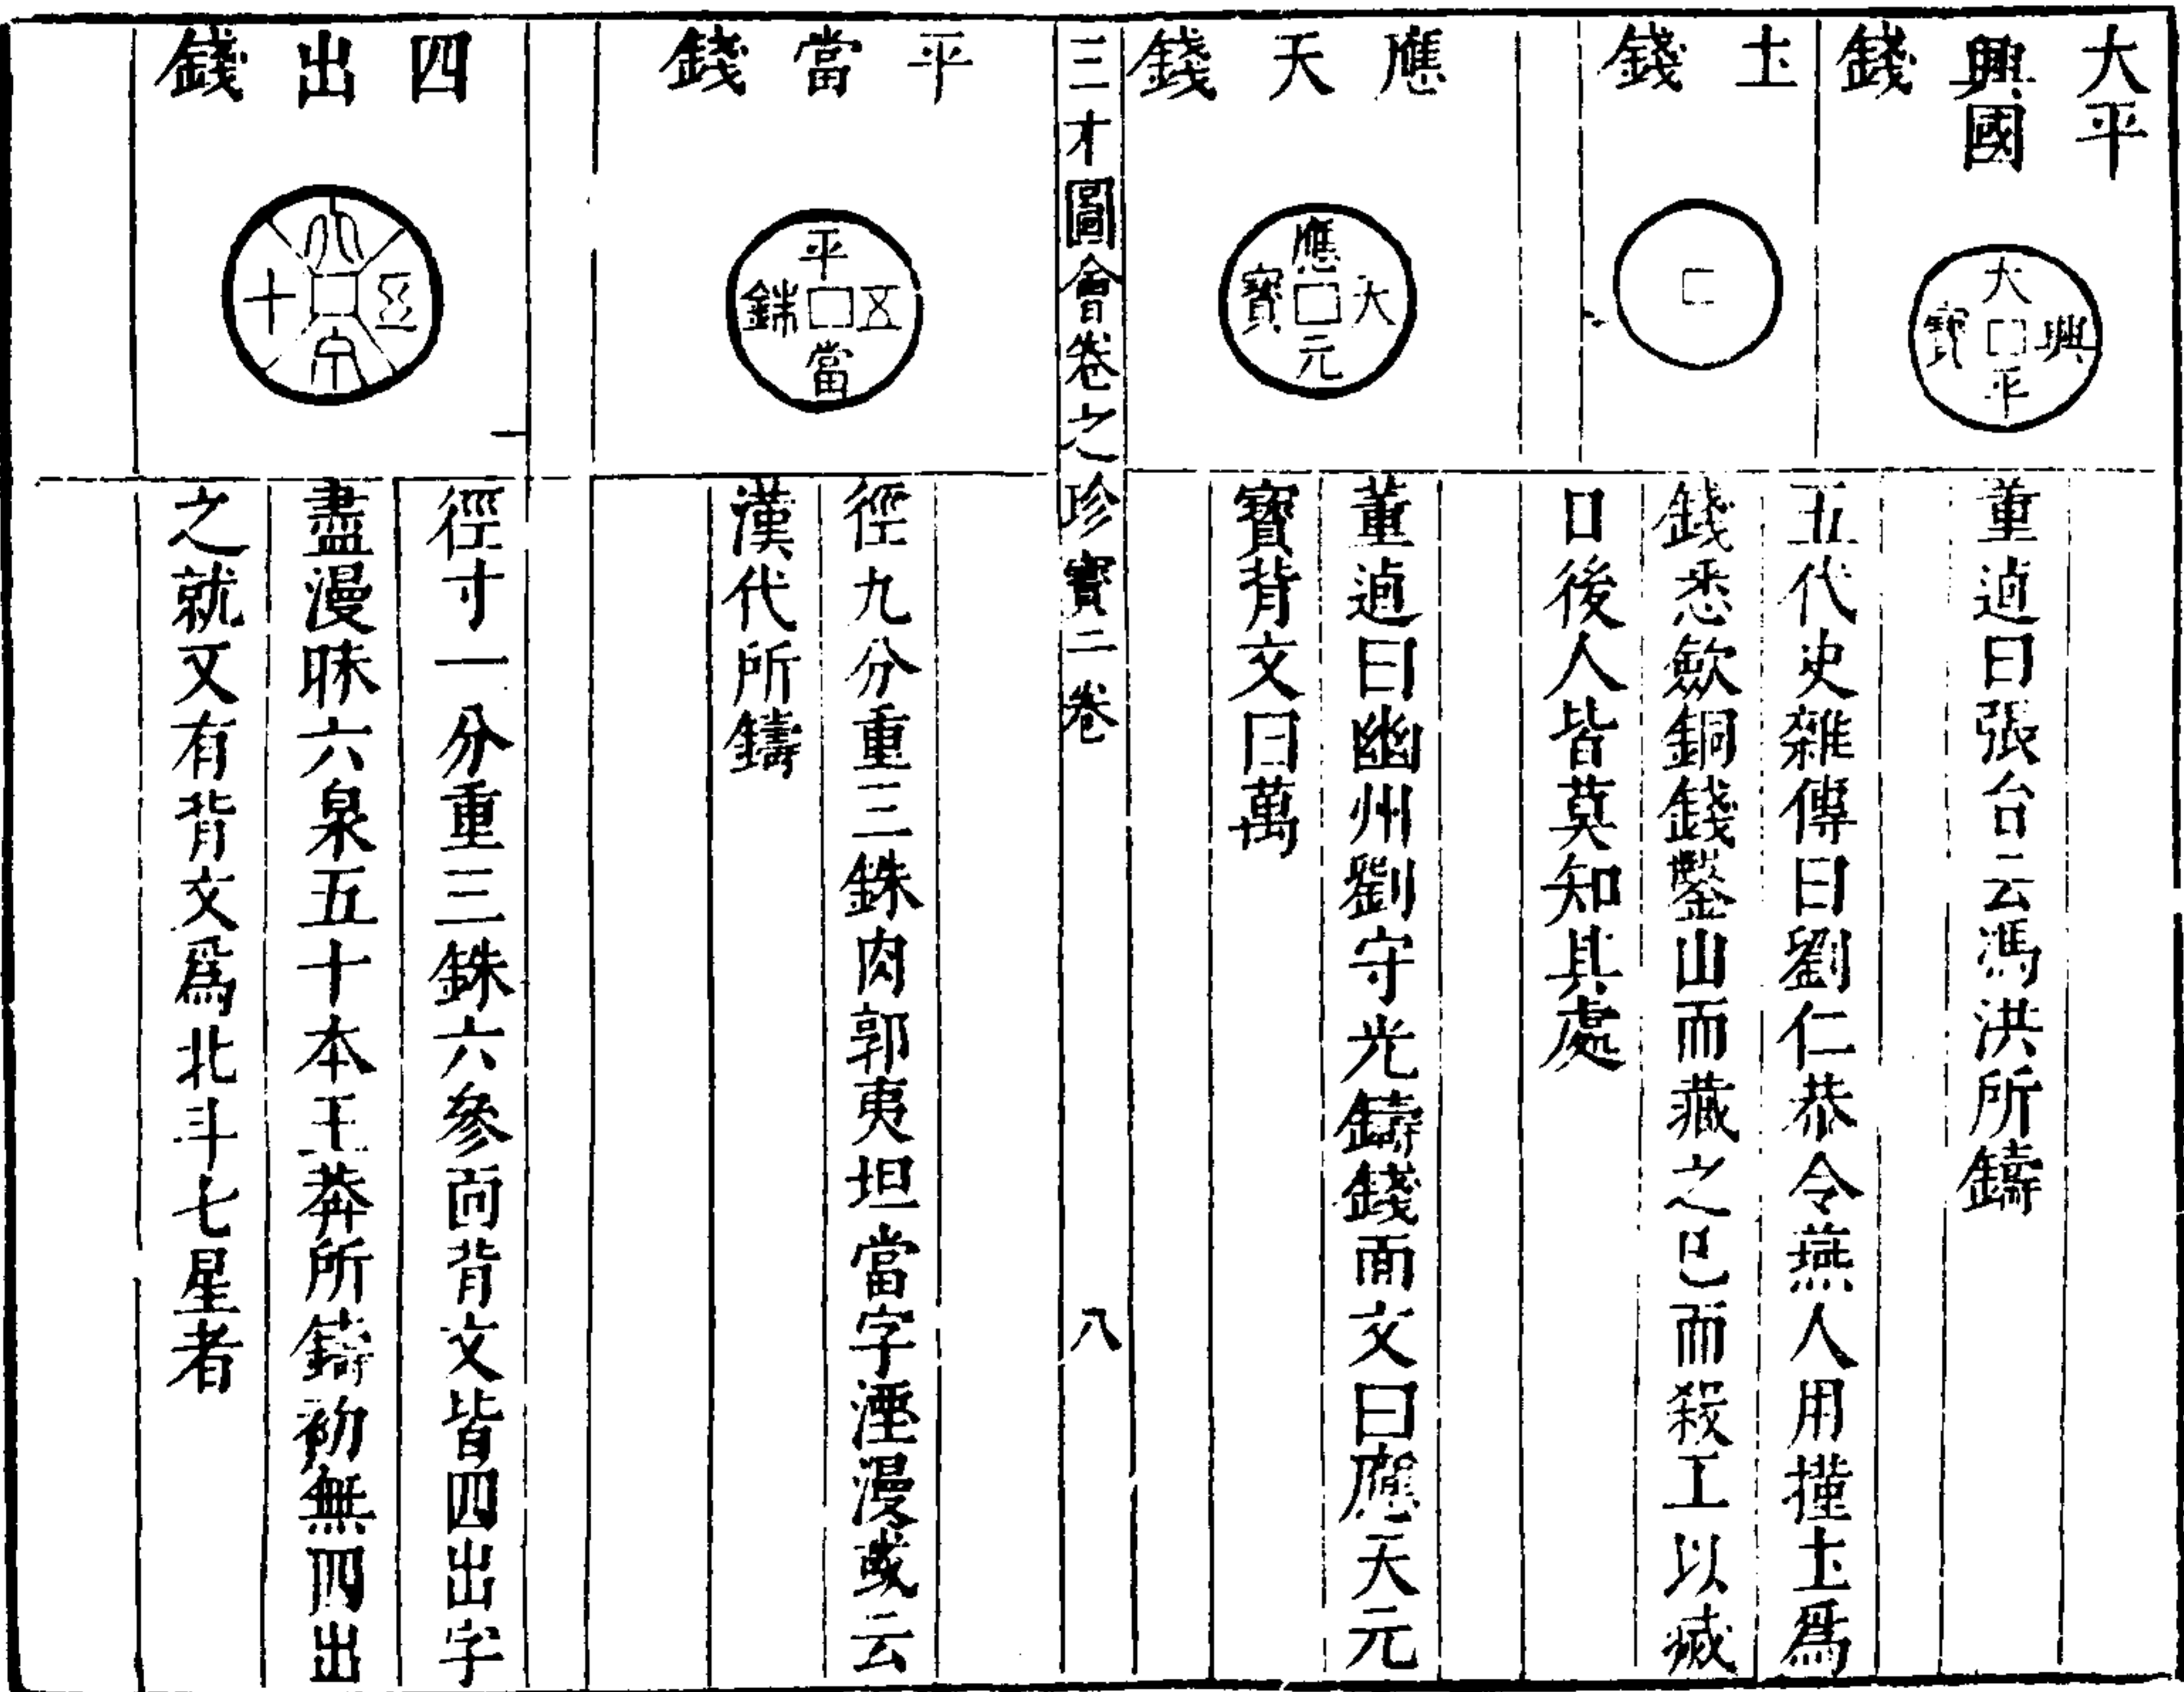 大平
興國
錢
大平興寶
董逌曰張台云馮洪所鑄
土錢
五代史雜傳曰劉仁恭令燕人用墐土爲
錢悉歛銅錢鑿山而藏之已而殺工以滅
口後人皆莫知其處
應天錢
應元大寶
董逌曰幽州劉守光鑄錢面文曰應天元
寶背文曰萬
三才圖會卷之珍寳二卷
八
平當錢
平當五銖
徑九分重三銖肉郭夷坦當字湮漫或云
漢代所鑄
四出錢
五十
徑寸一分重三銖六參面背文皆四出字
盡漫昧六泉五十本王莽所鑄初無四出
之就又有背文爲北斗七星者